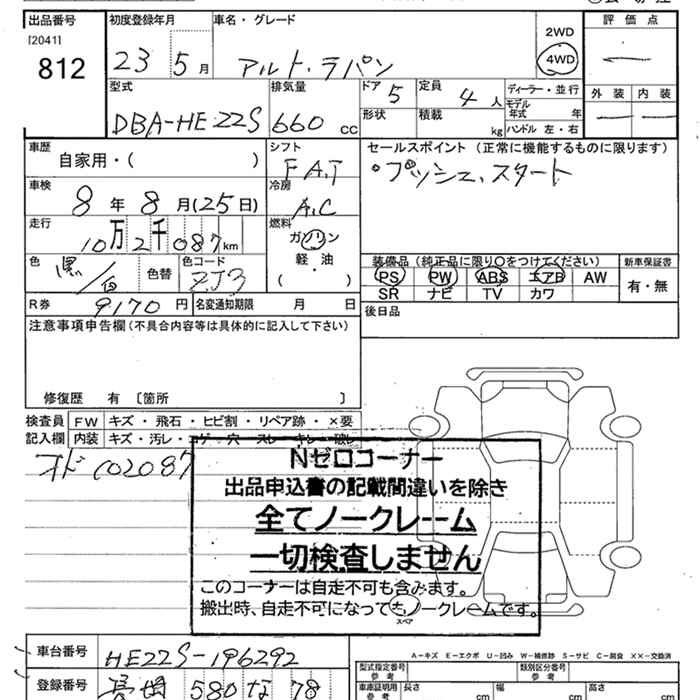 出品番号 初度登録年月 車名・グレード 2WD 評価点
[2041] 23 5月 アルト・ラパン 4WD
812
型式 排気量 ドア 5 定員 4人 ディーラー・並行 外装 内装
DBA-HE22S 660cc 形状 積載 kg モデル年式 年 ハンドル 左・右
車歴 シフト セールスポイント(正常に機能するものに限ります)
自家用・( ) FAT ・プッシュスタート
車検 8年8月(25日) 冷房 A,C
走行 10万2千087km 燃料 ガソリン
軽・油
( )
色 黒/白 色替 色コード ZJ3
装備品(純正品に限り〇をつけてください) 新車保証書
PS PW ABS エアB AW 有・無
SR ナビ TV カワ
R券 9170円 名変通知期限 月 日 後日品
注意事項申告欄(不具合内容等は具体的に記入して下さい)
修復歴 有 〔箇所 〕
検査員 FW キズ・飛石・ヒビ割・リペア跡・×要
記入欄 内装 キズ・汚レ・コゲ・穴・スレ・キレ・破レ
オド 102087
Nゼロコーナー
出品申込書の記載間違いを除き
全てノークレーム
一切検査しません
このコーナーは自走不可も含みます。
搬出時、自走不可になってもノークレームです。
スペア
A−キズ E−エクボ U−凹み W−補修跡 S−サビ C−腐食 XX−交換済
車台番号 HE22S-196292 型式指定番号 参考 類別区分番号 参考
登録番号 580 な 78 車庫証明用 参考 長さ cm 幅 cm 高さ cm